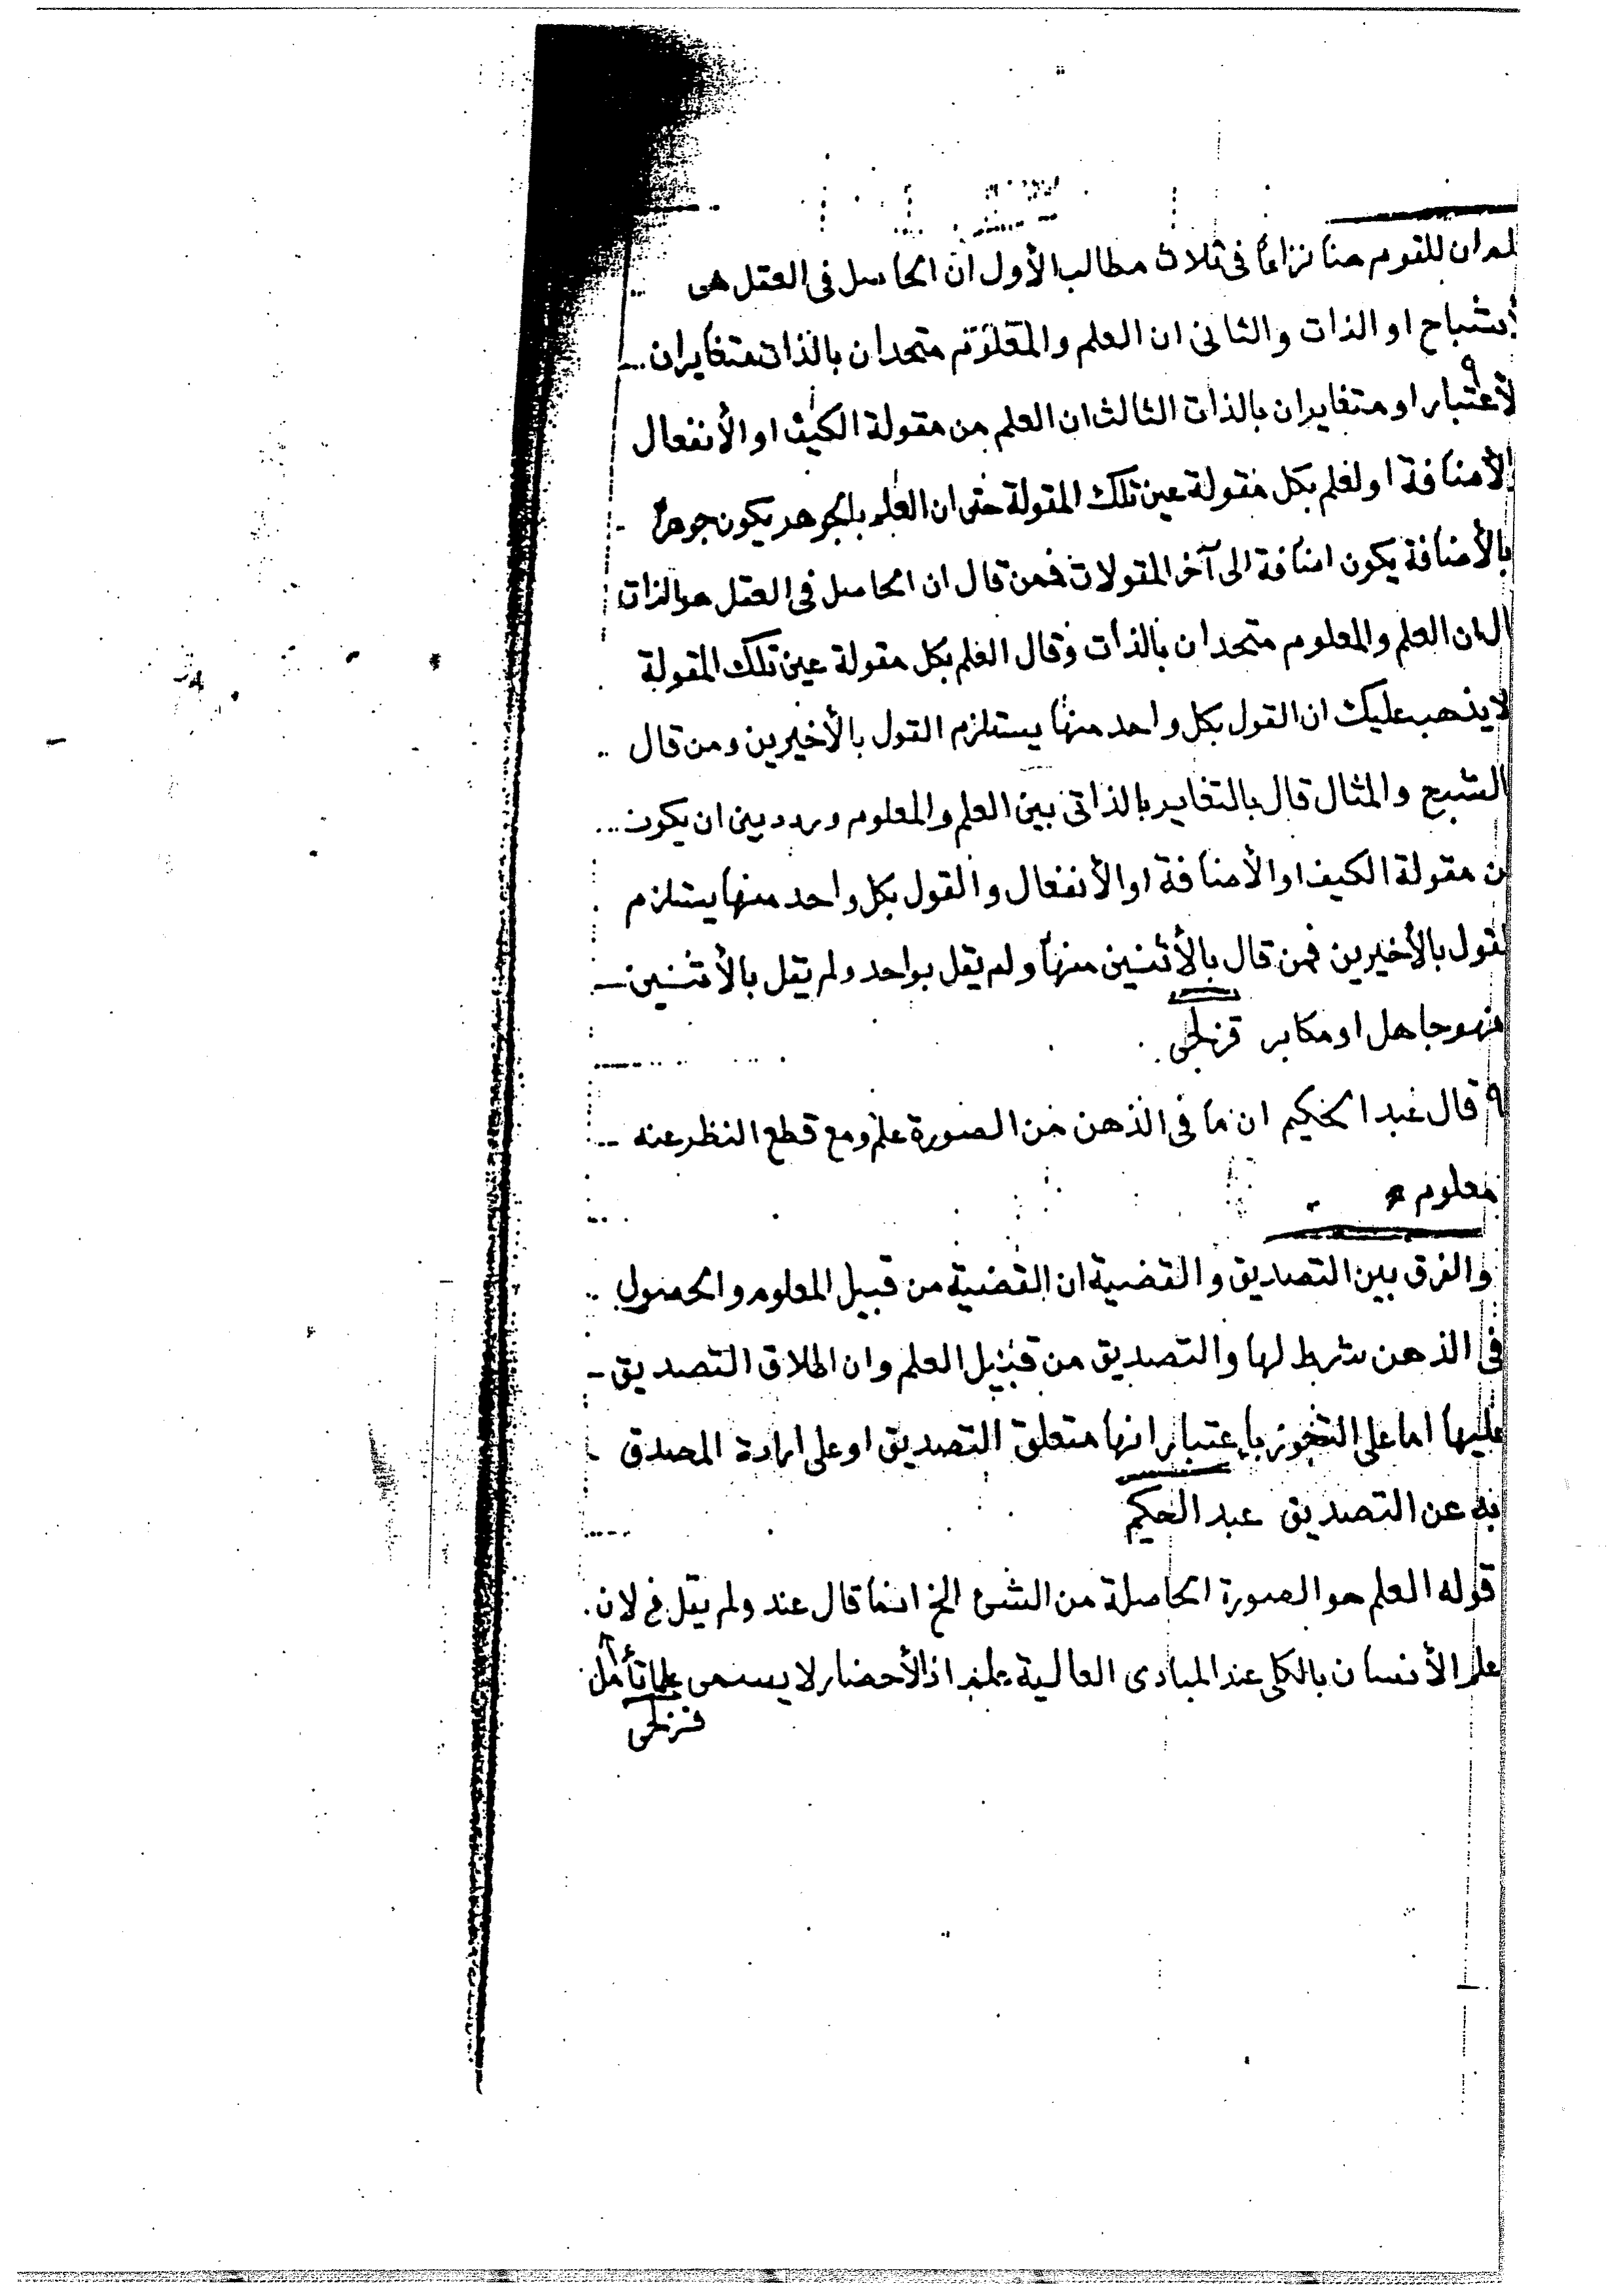 لم ان للقوم هنا نزاعًا فى ثلاث مطالب الأول ان الحاصل فى العقل هى
أشباح او الذات والثانى ان العلم والمعلوم متحدان بالذات متغايران
لأعتبار او متغايران بالذات الثالث ان العلم من مقولة الكيف او الأنفعال
الأضافة او لعلم بكل مقولة عين تلك المقولة حتى ان العلم بالجوهر يكون جوهرًا
بالأضافة يكون اضافة الى آخر المقولات فمن قال ان الحاصل فى العقل هو الذات
ال ان العلم والمعلوم متحدان بالذات وقال العلم بكل مقولة عين تلك المقولة
لا يذهب عليك ان القول بكل واحد منها يستلزم القول بالأخيرين ومن قال
الشبح والمثال قال بالتغاير بالذاتى بين العلم والمعلوم وردد بين ان يكون
من مقولة الكيف او الأضافة او الأنفعال والقول بكل واحد منها يستلزم
لقول بالأخيرين فمن قال بالأثنين منها ولم يقل بواحد ولم يقل بالأثنين
فهو جاهل او مكابر قزلجى
٩ قال عبد الحكيم ان ما فى الذهن من الصورة علم ومع قطع النظر عنه
معلوم
والفرق بين التصديق والقضية ان القضية من قبيل المعلوم والحصول
فى الذهن شرط لها والتصديق من قبيل العلم وان اطلاق التصديق
عليها اما على التجوز بإعتبار انها متعلق التصديق او على ارادة المصدق
به عن التصديق عبد الحكيم
قوله العلم هو الصورة الحاصلة من الشئ الخ انما قال عند ولم يقل فى لان
علم الأنسان بالكلى عند المبادى العالية اذ الأحضار لا يسمى علما تأمل
قزلجى